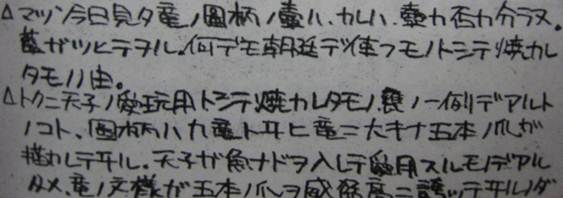 △マヅ今日見タ竜ノ図柄ノ壷ハ、カレハ、壷カ否カ分ラヌ。
蓋ガツヒテヲル。何デモ朝廷デ使フモノトシテ焼カレ
タモノノ由。
△トクニ天子ノ愛玩用トシテ焼カレタモノノ一例デアルト
ノコト、図柄ハ九竜ト耳ヒ竜ニ大キナ五本ノ爪ガ
描カレテヰル。天子ガ魚ナドヲ入レテ用スルモノデアル
タメ、竜ノ文様ガ五本ノ爪ヲ威猛高ニ誇ッテヰルノダ